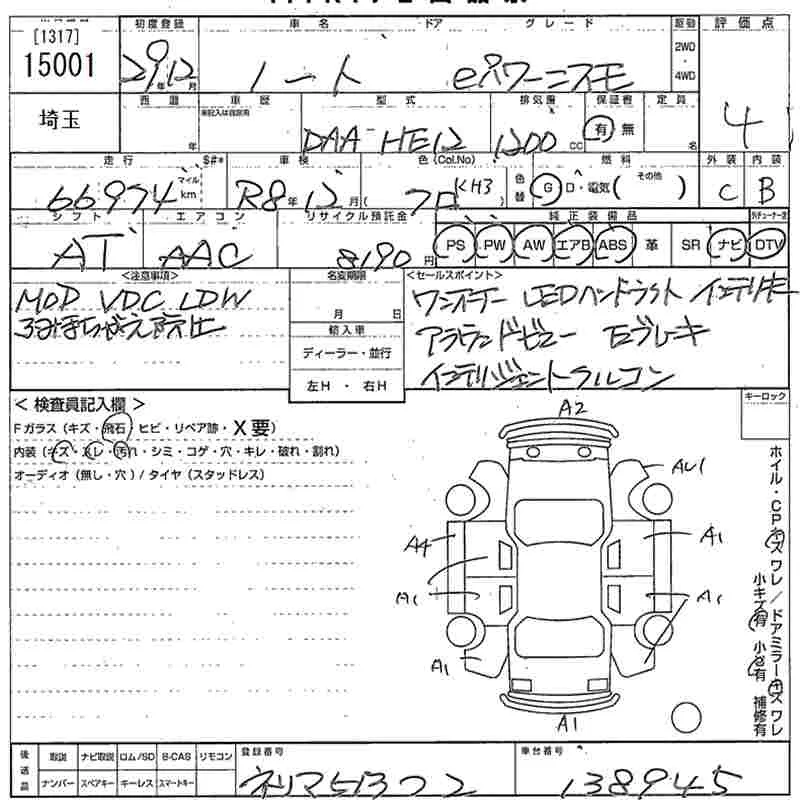 [1317]
15001
初度登録
車名
ドア
グレード
駆動
評価点
29年12月
ノート
eパワーニスモ
2WD
・
4WD
4
埼玉
年
車歴
型式
排気量
保証書
定員
DAA-HE12
1200 cc
有 無
名
走行
車検
色(Col.No)
燃料
外装
内装
66974
マイル
km
R8年12月
KH3
色替
G D・電気(その他 )
C
B
シフト
エアコン
リサイクル預託金
純正装備品
AT
AAC
8190 円
PS PW AW エアB ABS 革 SR ナビ DTV
<注意事項>
名変期限
<セールスポイント>
MOD VDC LDW
ふみまちがえ防止
月 日
輸入車
ディーラー・並行
左H ・ 右H
ワンオーナー LEDヘッドライト インテリキー
アラウンドビュー エマブレーキ
インテリジェントクルコン
<検査員記入欄>
キーロック
Fガラス(キズ・飛石 ヒビ・リペア跡・X要)
内装(キズ・スレ・汚れ・シミ・コゲ・穴・キレ・破れ・割れ)
オーディオ(無し・穴)/タイヤ(スタッドレス)
A2
A1
A4
A1
A1
A1
A1
ホイル・CPキズ ワレ/ドアミラーキズ ワレ
小キズ有 小凹有 補修有
後送品
取説
ナビ取説
ロム/SD
B-CAS
リモコン
ナンバー
スペアキー
キーレス
スマートキー
登録番号
車台番号
ネリマ513つ2
138945